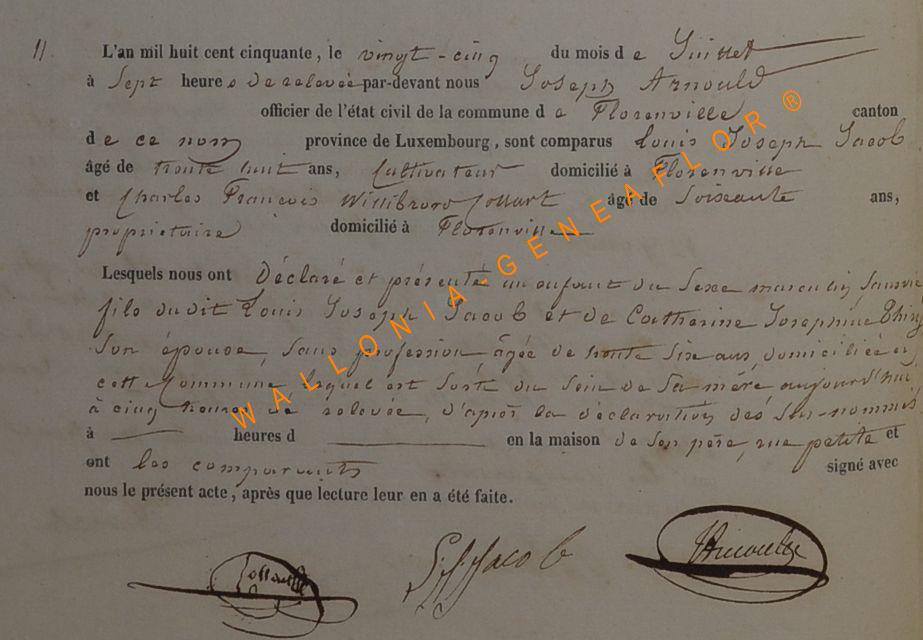 11.
L'an mil huit cent cinquante, le vingt-cinq du mois de Juillet
à Sept heures de relevée par-devant nous Joseph Arnould
officier de l'état civil de la commune de Florenville canton
de ce nom province de Luxembourg, sont comparus Louis Joseph Jacob
âgé de trente huit ans, Cultivateur domicilié à Florenville
et Charles François Willibrord Collart âgé de Soixante ans,
propriétaire domicilié à Florenville
Lesquels nous ont Déclaré et présenté un enfant du Sexe masculin, Sans vie
fils dudit Louis Joseph Jacob et de Catherine Josephine
Son épouse, Sans profession âgée de trente Six ans, domiciliée en
cette Commune, lequel est Sorti du Sein de Sa mère aujourd'hui
à cinq heures de relevée, d'après la déclaration des Sus-nommés
à heures d en la maison de Son père, rue petite et
ont les comparants signé avec
nous le présent acte, après que lecture leur en a été faite.
Collart LJJacob JArnould
WALLONIA-GENEAFLOR ®